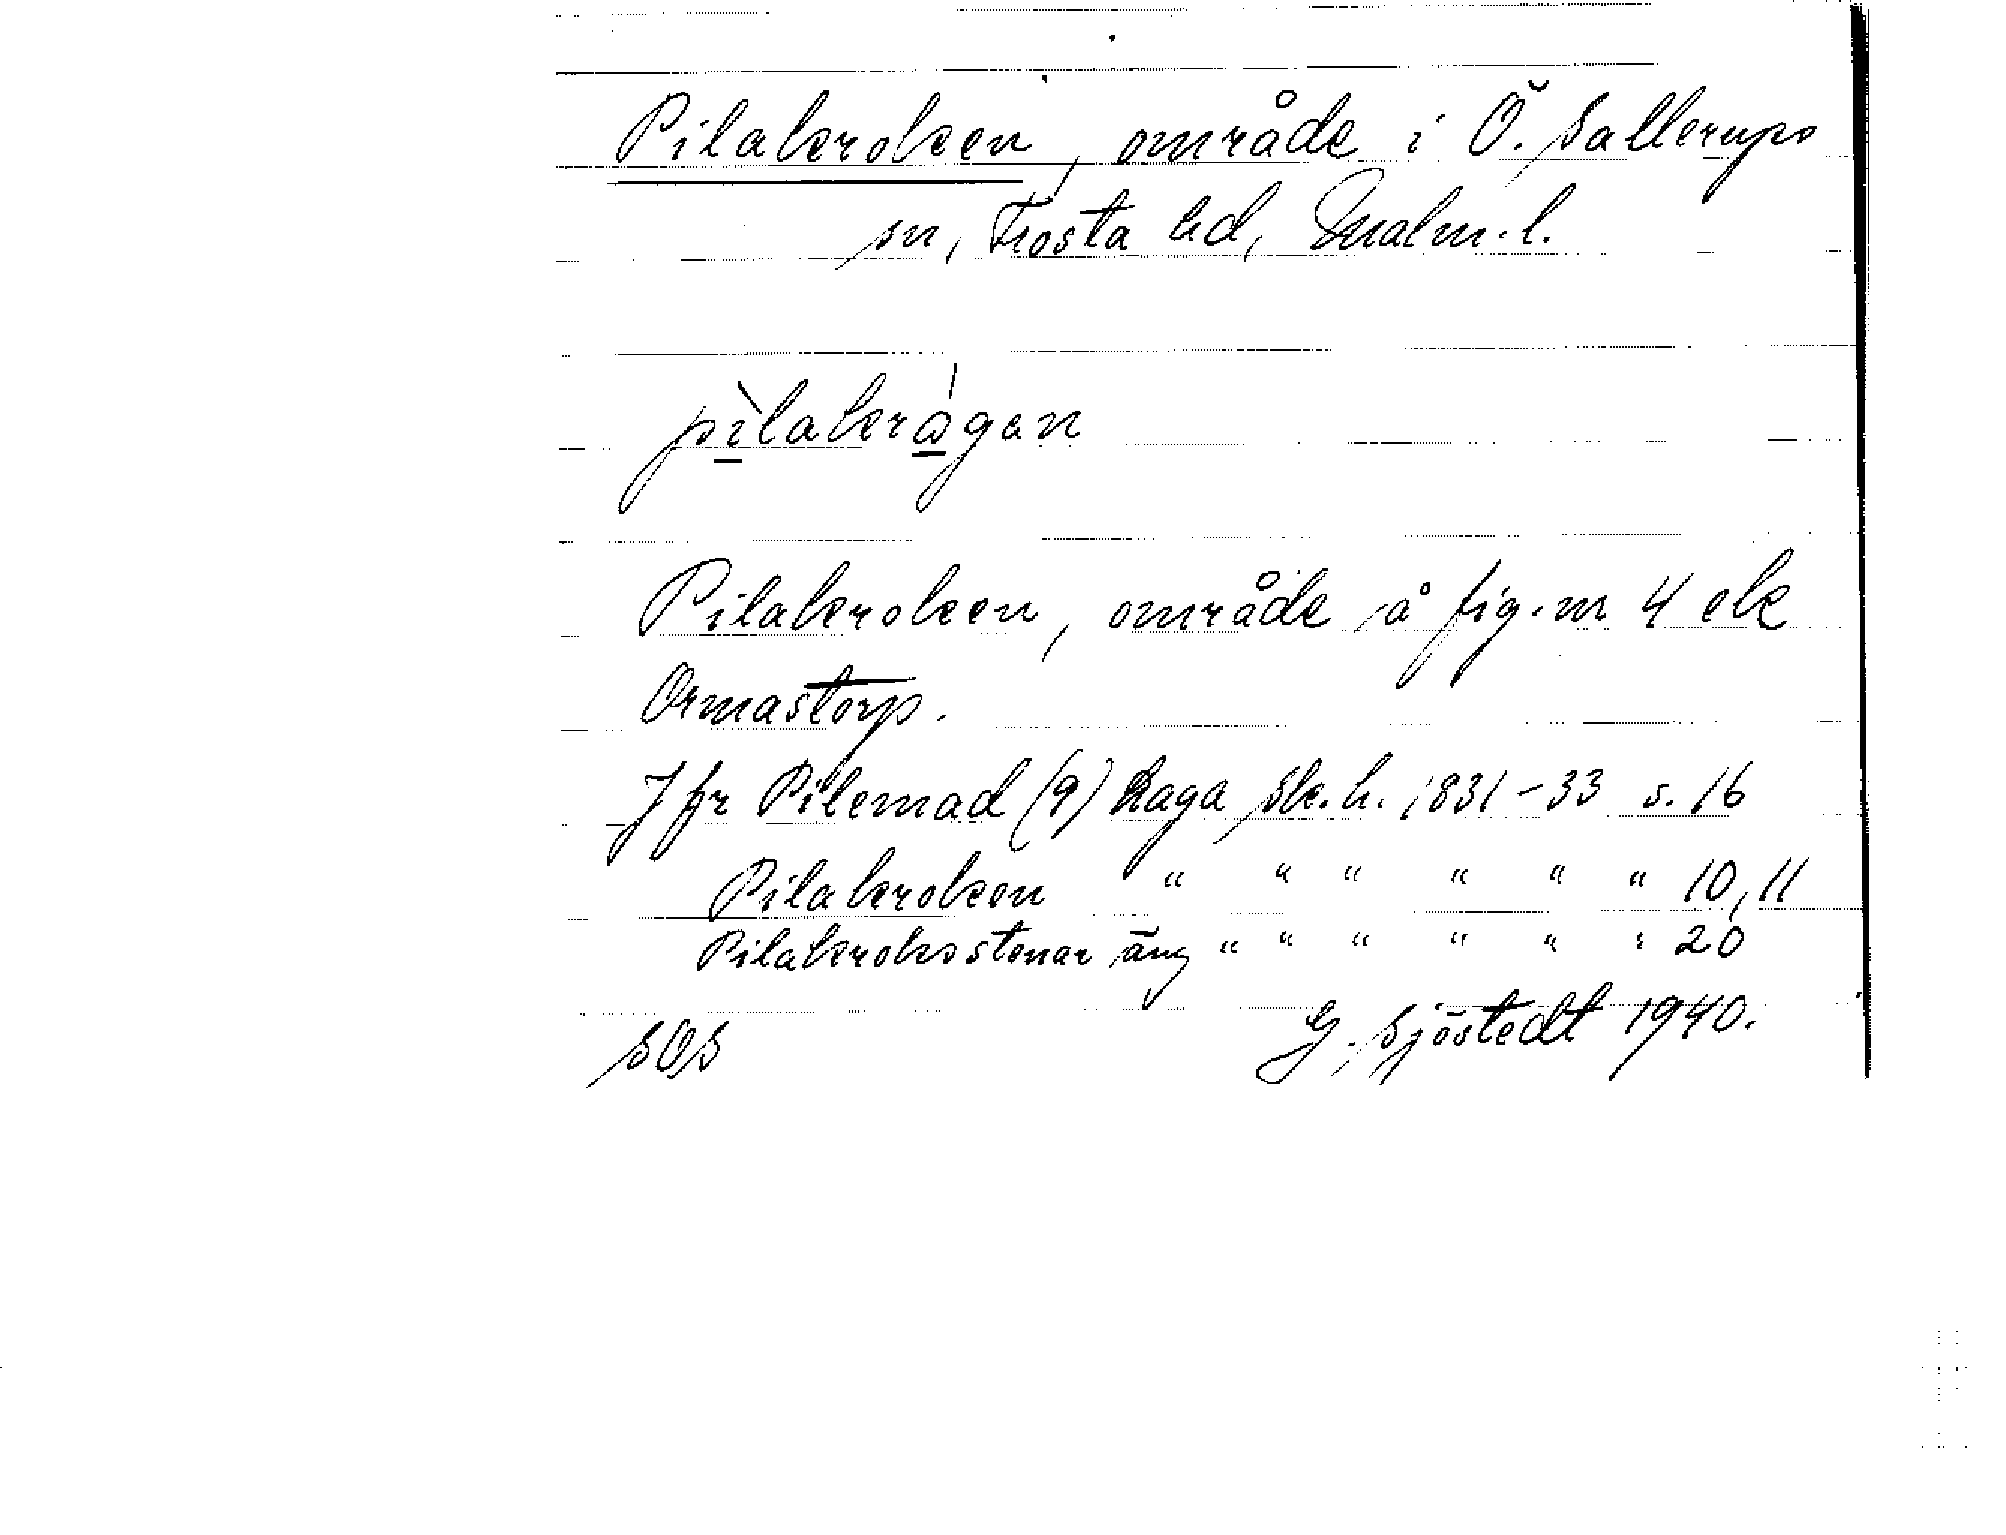 Pilakroken, område i Ö. Sallerups
sn, Frosta hd, Malm. l.
pìlakrågan
Pilakroken, område å fig. nr 4 ek
Ormastorp.
Jfr Pilemad (9) Laga sk. h. 1831–33 s. 16
Pilakroken " " " " " " 10, 11
Pilakroksstenar äng " " " " " " 20
SOS G. Sjöstedt 1940.